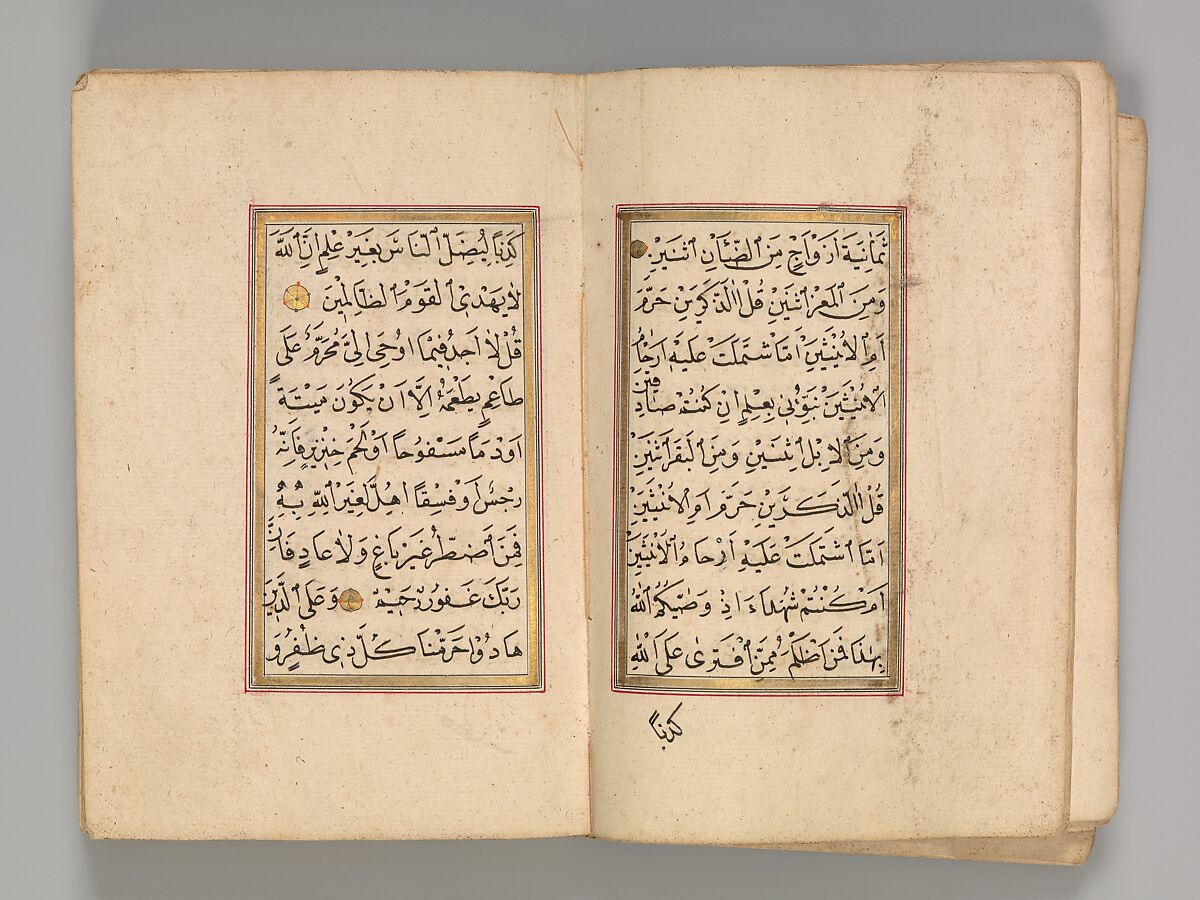 ثَمَانِيَةَ اَزْوَاجٍ مِنَ ٱلضَّأْنِ ٱثْنَيْنِ
وَمِنَ ٱلْمَعْزِ ٱثْنَيْنِ قُلْ اٰلذَّكَرَيْنِ حَرَّمَ
اَمِ ٱلْاُنْثَيَيْنِ اَمَّا ٱشْتَمَلَتْ عَلَيْهِ اَرْحَامُ
ٱلْاُنْثَيَيْنِ نَبِّؤُنِى بِعِلْمٍ اِنْ كُنْتُمْ صَادِقِينَ
وَمِنَ ٱلْاِبِلِ ٱثْنَيْنِ وَمِنَ ٱلْبَقَرِ ٱثْنَيْنِ
قُلْ اٰلذَّكَرَيْنِ حَرَّمَ اَمِ ٱلْاُنْثَيَيْنِ
اَمَّا ٱشْتَمَلَتْ عَلَيْهِ اَرْحَامُ ٱلْاُنْثَيَيْنِ
اَمْ كُنْتُمْ شُهَدَاءَ اِذْ وَصّٰيكُمُ ٱللّٰهُ
بِهٰذَا فَمَنْ اَظْلَمُ مِمَّنِ ٱفْتَرٰى عَلَى ٱللّٰهِ
كَذِبًا
كَذِبًا لِيُضِلَّ ٱلنَّاسَ بِغَيْرِ عِلْمٍ اِنَّ ٱللّٰهَ
لَا يَهْدِى ٱلْقَوْمَ ٱلظَّالِمِينَ
قُلْ لَا اَجِدُ فِيمَا اُوحِىَ اِلَىَّ مُحَرَّمًا عَلٰى
طَاعِمٍ يَطْعَمُهُ اِلَّا اَنْ يَكُونَ مَيْتَةً
اَوْ دَمًا مَسْفُوحًا اَوْ لَحْمَ خِنْزِيرٍ فَاِنَّهُ
رِجْسٌ اَوْ فِسْقًا اُهِلَّ لِغَيْرِ ٱللّٰهِ بِهِ
فَمَنِ ٱضْطُرَّ غَيْرَ بَاغٍ وَلَا عَادٍ فَاِنَّ
رَبَّكَ غَفُورٌ رَحِيمٌ وَعَلَى ٱلَّذِينَ
هَادُوا حَرَّمْنَا كُلَّ ذِى ظُفُرٍ وَ